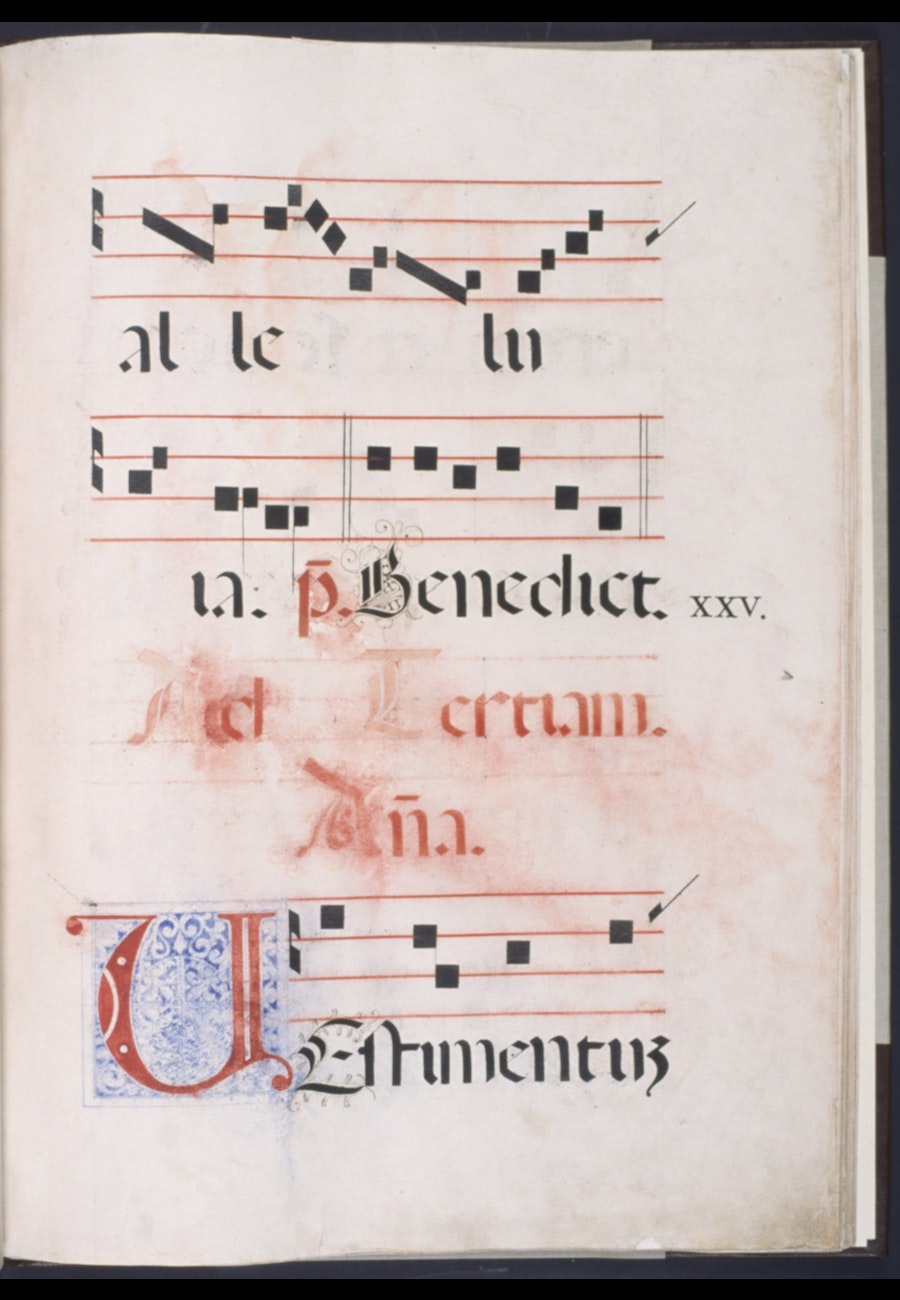 al le lu
ia. p̄. Benedict. XXV.
Ad Tertiam.
Añ̄a.
VEstimentuʒ